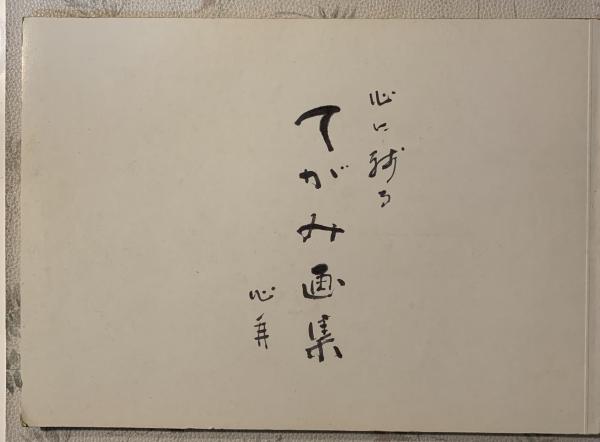 心に残る
てがみ画集
心